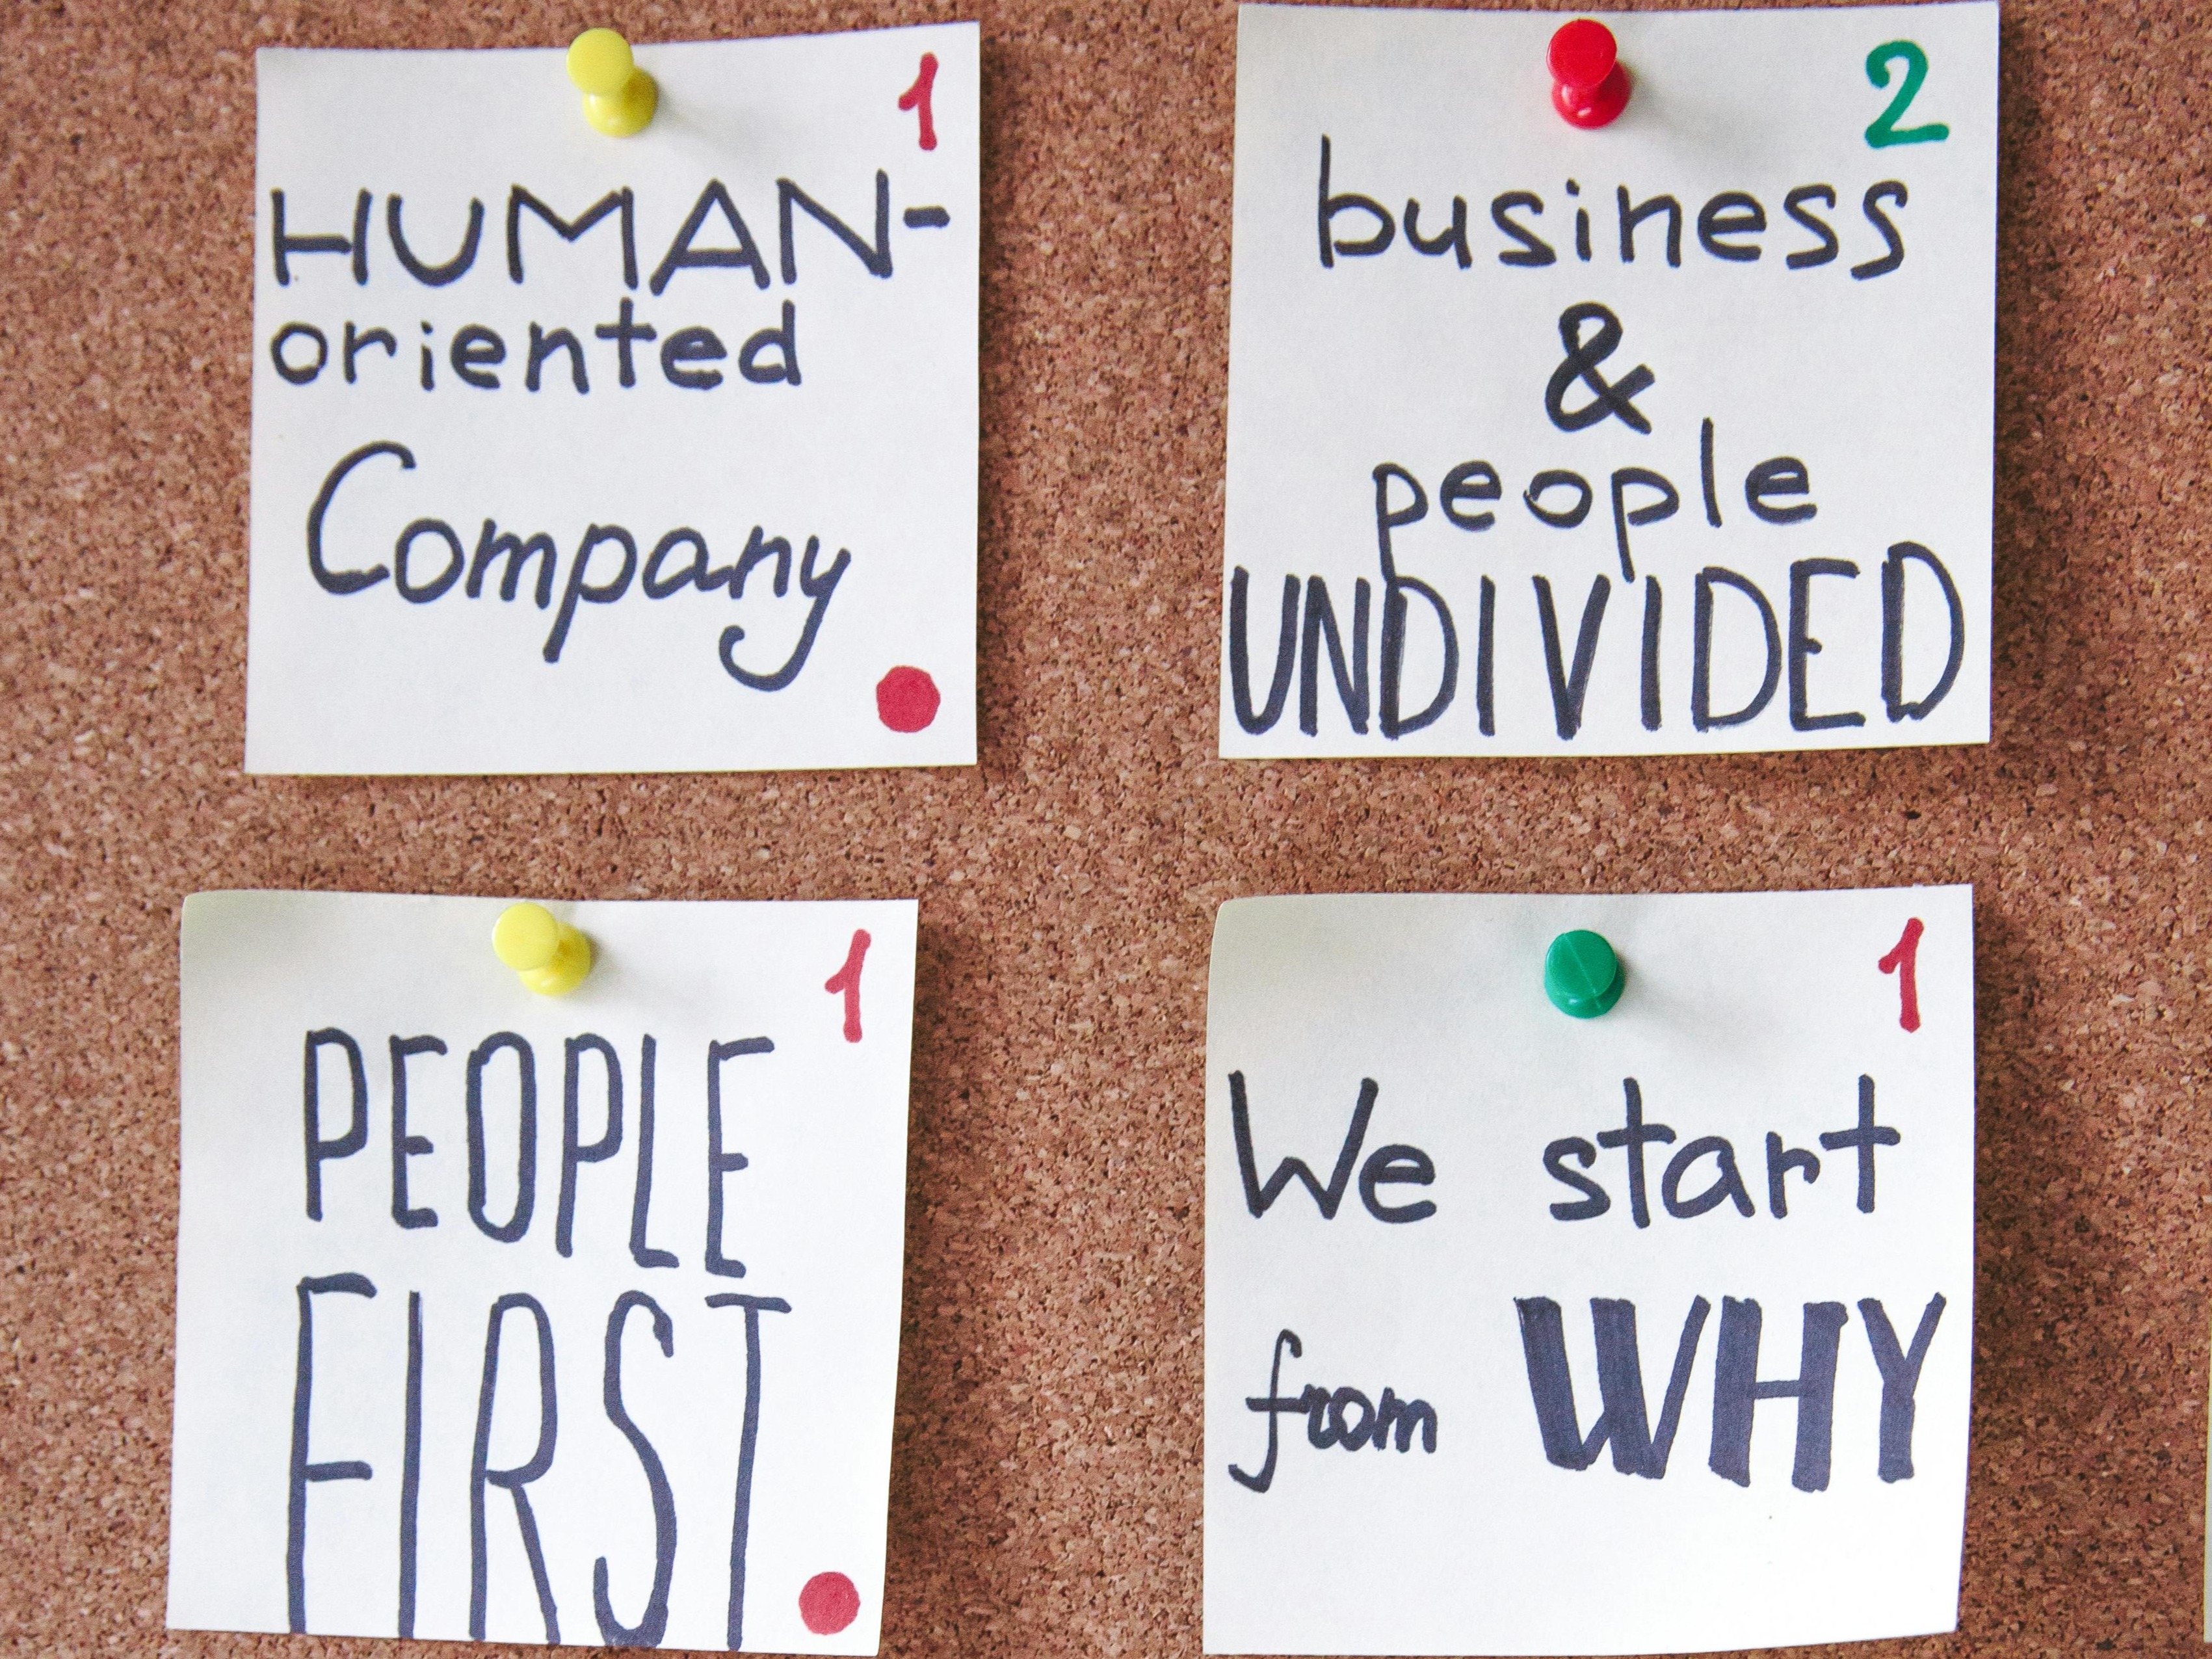 1
HUMAN-
oriented
Company
2
business
&
people
UNDIVIDED
1
PEOPLE
FIRST
1
We start
from WHY